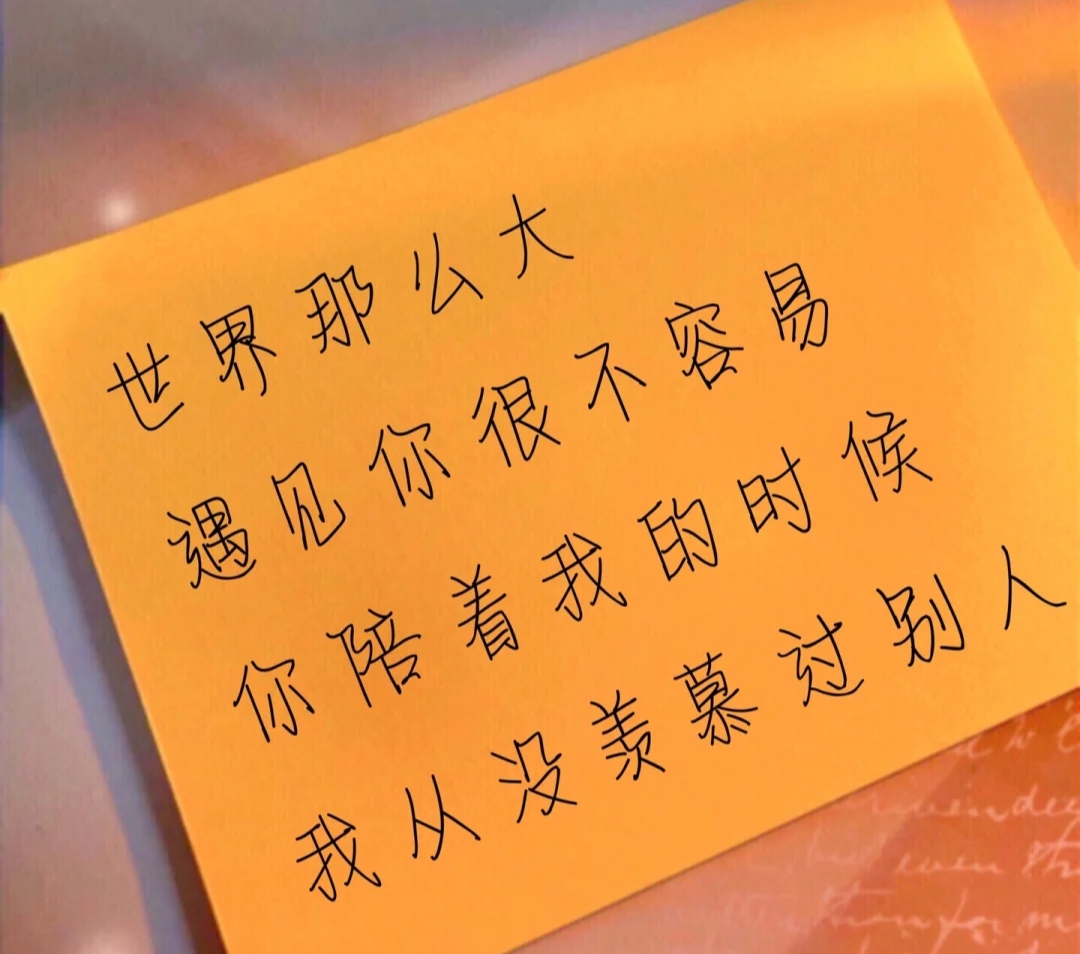 世界那么大
遇见你很不容易
你陪着我的时候
我从没羡慕过别人